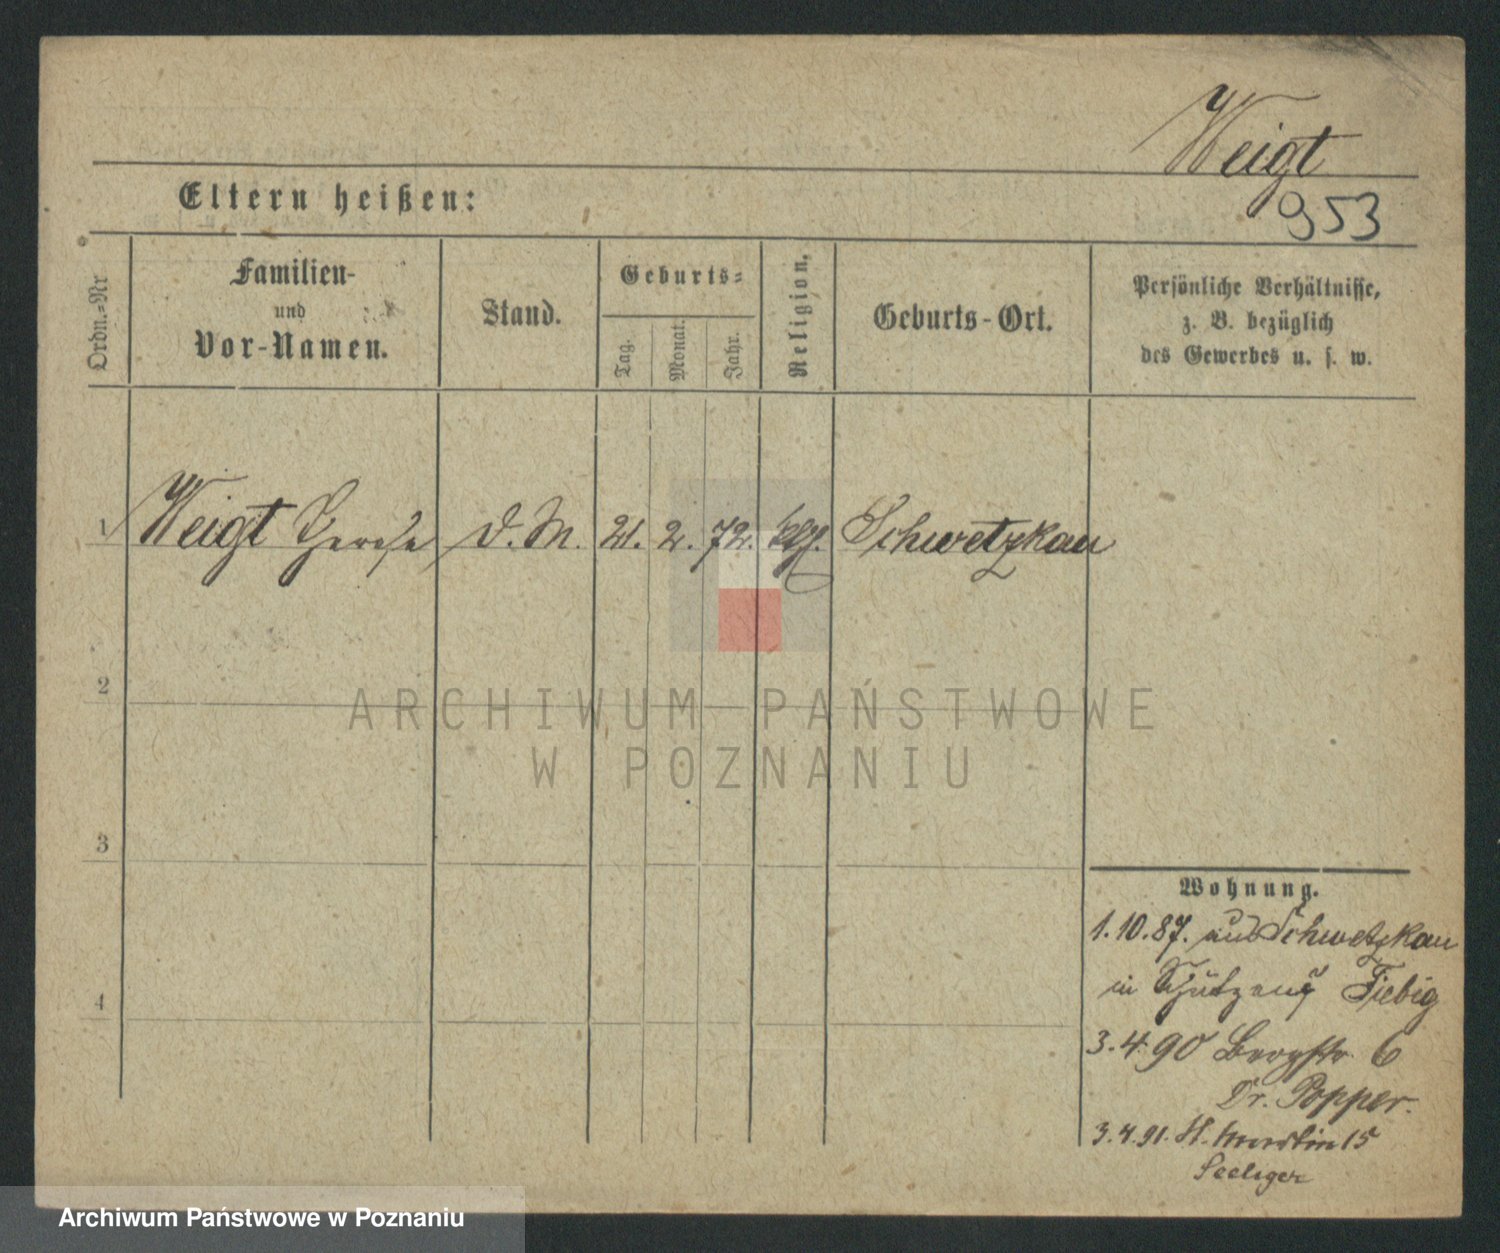 Weigt
953
Eltern heißen:
Ordn.-Nr
Familien-
und
Vor-Namen.
Stand.
Geburts-
Tag.
Monat.
Jahr.
Religion.
Geburts-Ort.
Persönliche Verhältnisse,
z. B. bezüglich
des Gewerbes u. s. w.
1 Weigt Therese D. M. 21. 2. 72. Schwetzkau
2
3
4
ARCHIWUM PAŃSTWOWE
W POZNANIU
Wohnung.
1.10.87. aus Schwetzkau
in Fiebig
3.4.90 Bergstr. 6
Dr. Popper.
3.4.91. St. Martin 15
Seeliger
Archiwum Państwowe w Poznaniu